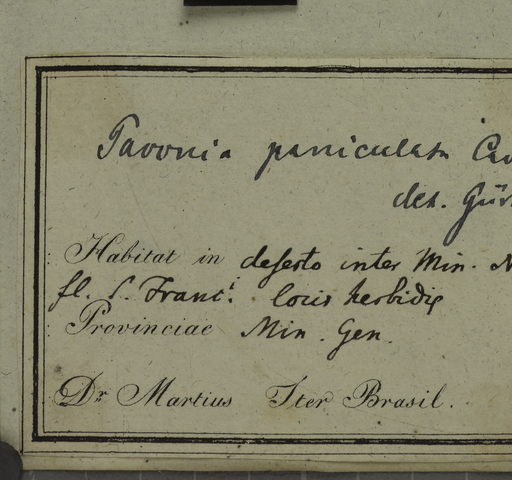 Pavonia paniculata Cav
det. Gür
Habitat in deserto inter Min. N
fl. S. Franc. locis herbidis
Provinciae Min. Gen.
Dr Martius Iter Brasil.